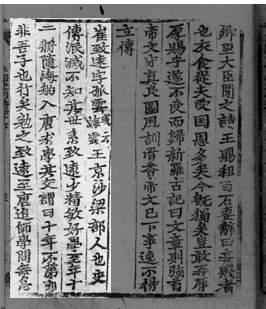 鄕里大臣聞之請王賜租百石妻辭曰妾賤者
也衣食從夫受國恩多矣今旣獨矣豈敢再辱
厚賜乎遂不受而歸新羅古記曰文章則強首
帝文守眞良圖風訓骨沓帝文已下事逸不得
立傳
崔致遠字孤雲或云海雲王京沙梁部人也史
傳泯滅不知其世系致遠少精敏好學至年十
二將隨海舶入唐求學其父謂曰十年不第卽
非吾子也行矣勉之致遠至唐追師學問無怠